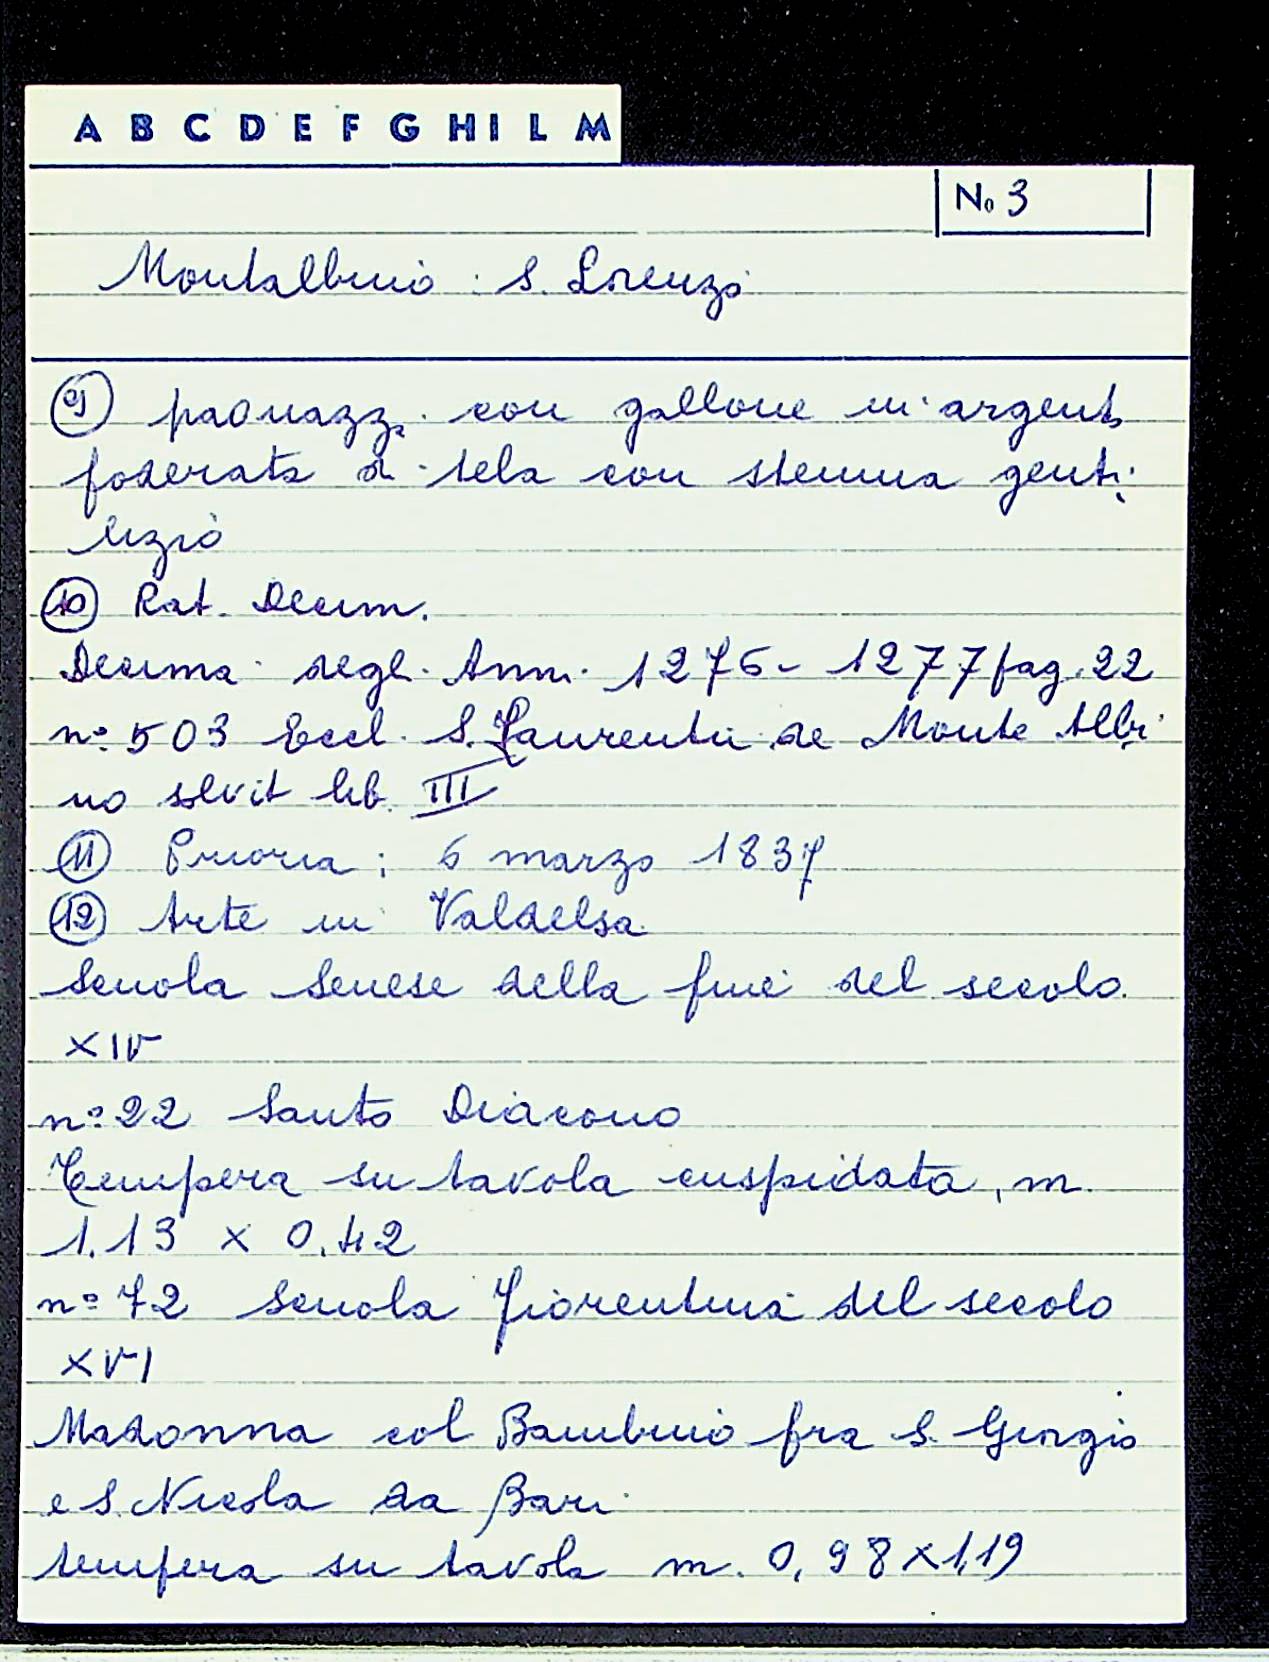 A B C D E F G H I L M
No 3
Montalbino: S. Lorenzo
9) paonazzi con gallone in argento
foderata di tela con stemma genti
lizio
10) Rat. Decim.
Decima degli Anni 1276-1277 pag. 22
n° 503 Eccl. S. Laurentii de Monte Albi
no solvit lib. III
11) Prioria: 6 marzo 1837
12) Arte in Valdelsa
Scuola Senese della fine del secolo
XIV
n° 22 Santo Diacono
Tempera su tavola cuspidata, m.
1.13 x 0.42
n° 72 Scuola Fiorentina del secolo
XVI
Madonna col Bambino fra S. Giorgio
e S. Nicola da Bari
tempera su tavola m. 0,98 x 1,19